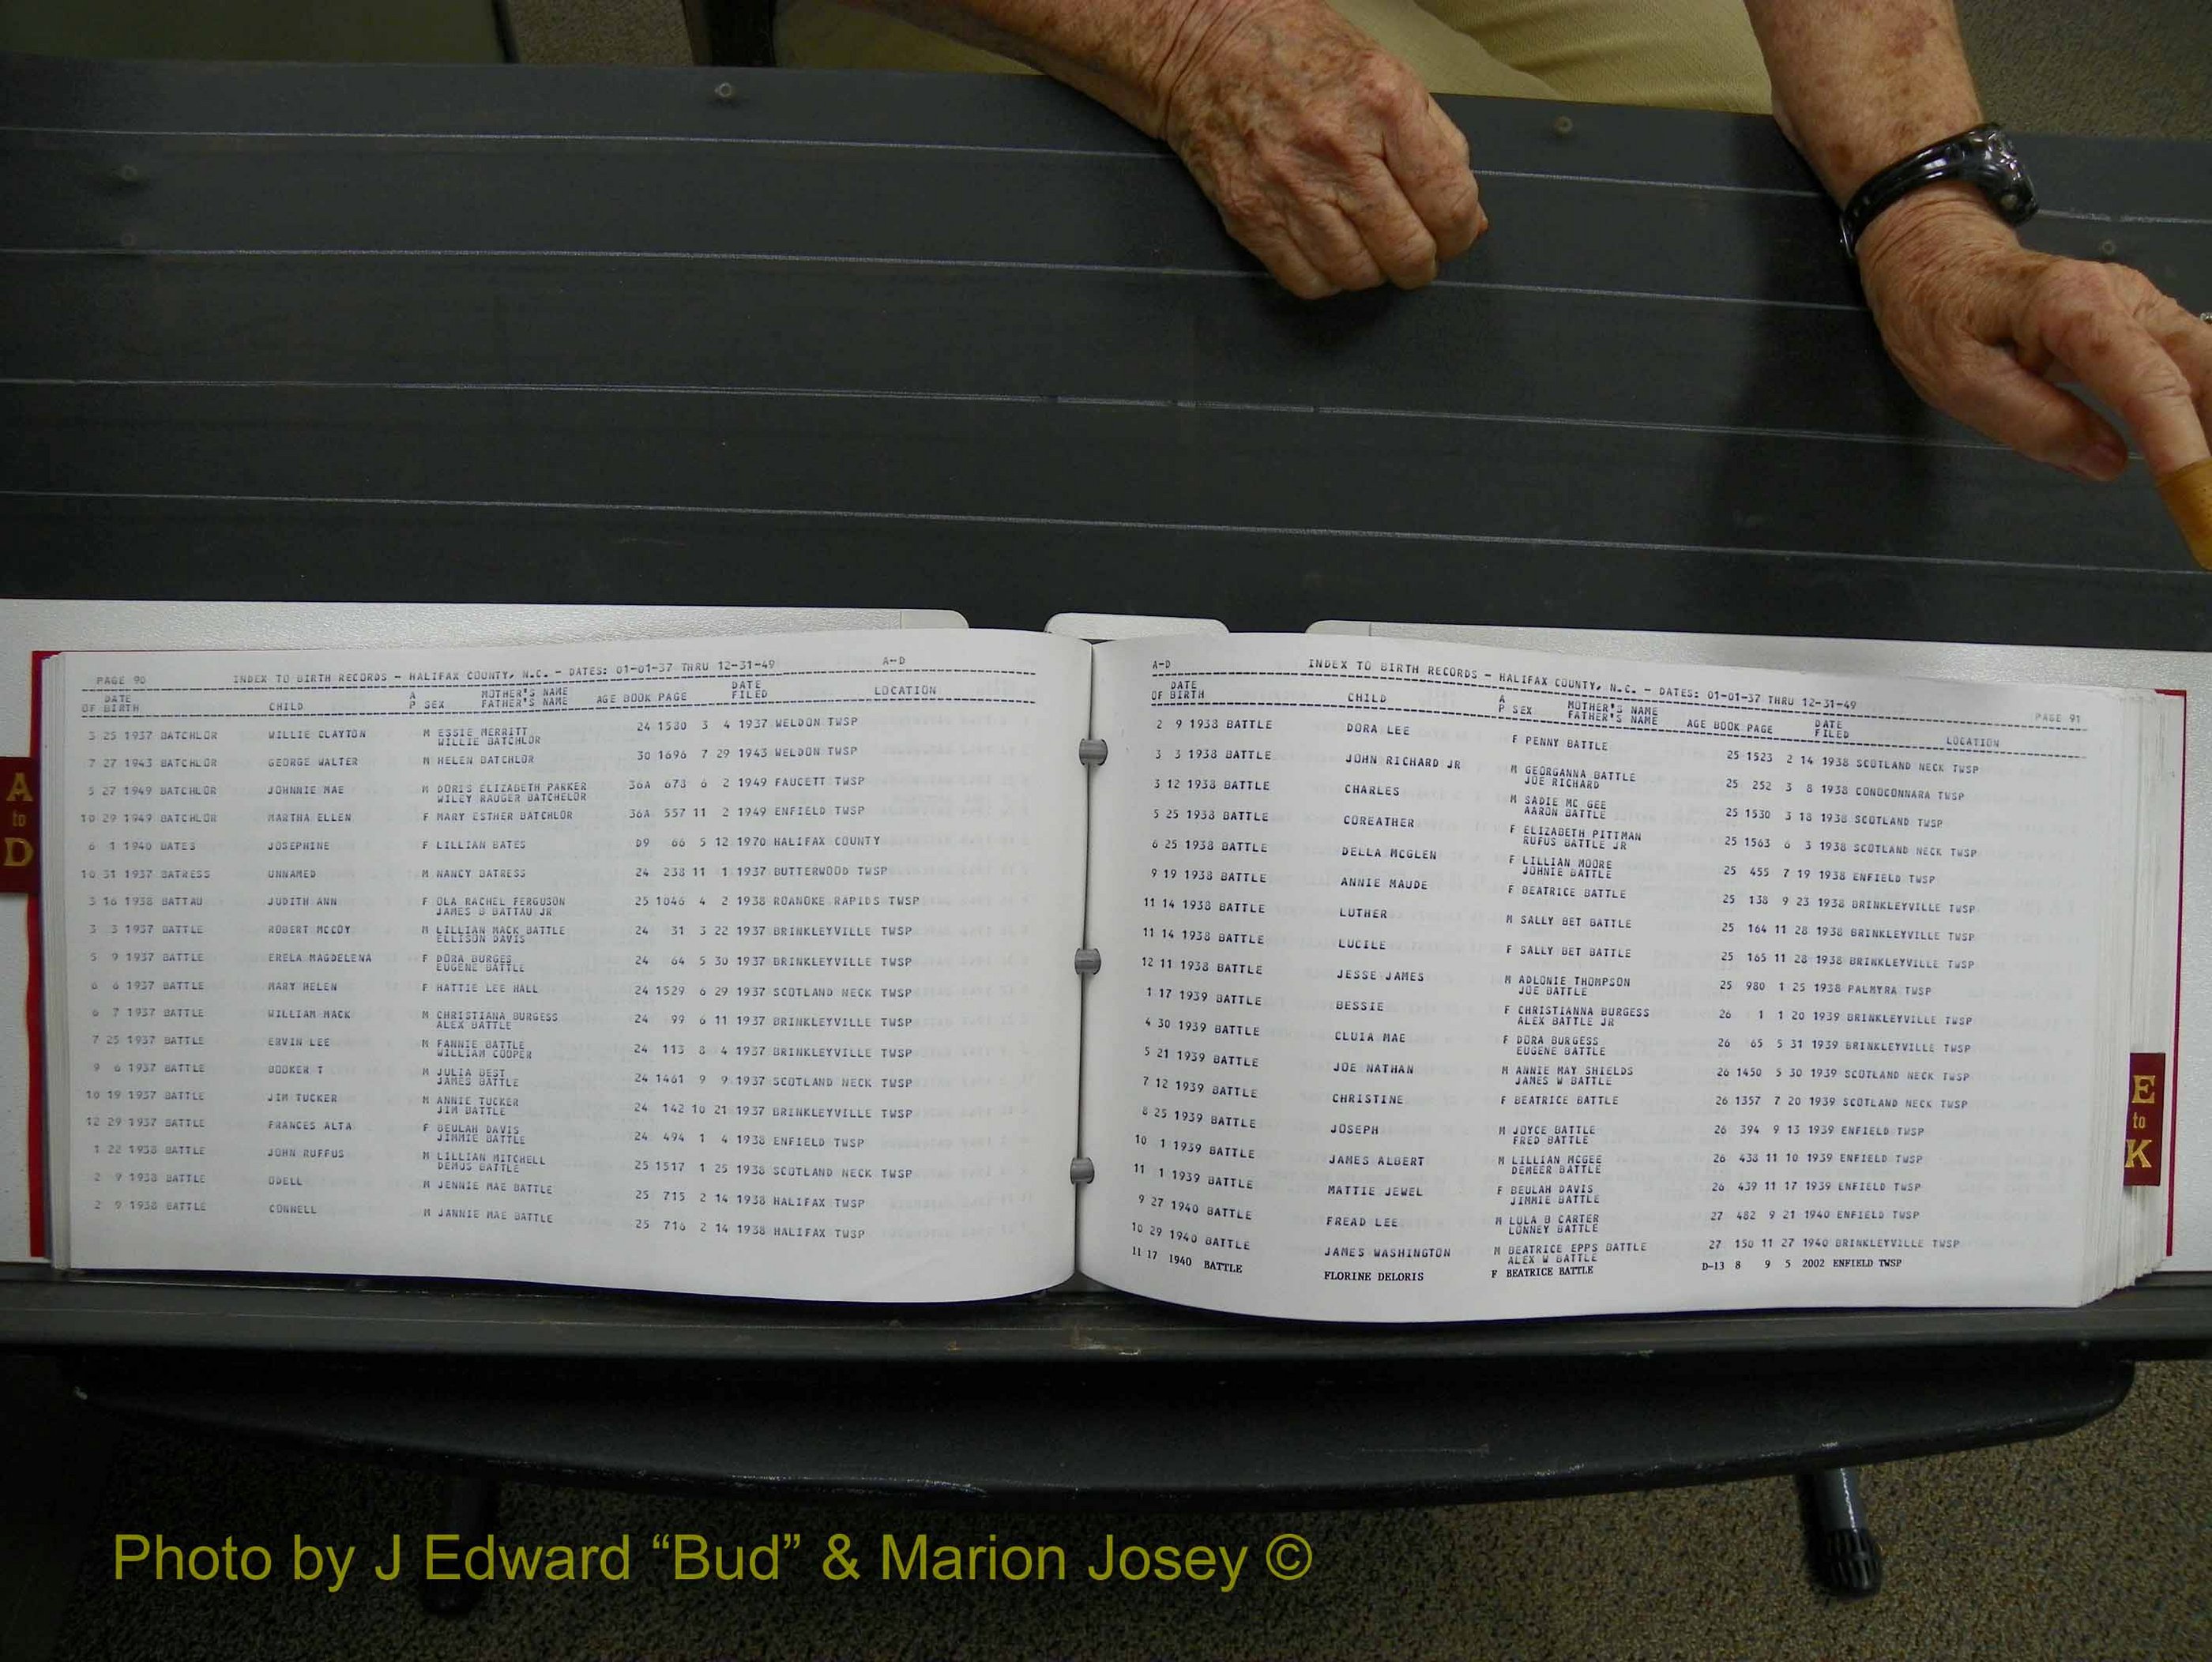 A
to
D
PAGE 90 INDEX TO BIRTH RECORDS - HALIFAX COUNTY, N.C. - DATES: 01-01-37 THRU 12-31-49 A-D
DATE OF BIRTH CHILD A P SEX MOTHER'S NAME FATHER'S NAME AGE BOOK PAGE DATE FILED LOCATION
3 25 1937 BATCHLOR WILLIE CLAYTON M ESSIE MERRITT 24 1580 3 4 1937 WELDON TWSP
WILLIE BATCHLOR
7 27 1943 BATCHLOR GEORGE WALTER M HELEN BATCHLOR 30 1696 7 29 1943 WELDON TWSP
5 27 1949 BATCHLOR JOHNNIE MAE M DORIS ELIZABETH PARKER 36A 673 6 2 1949 FAUCETT TWSP
WILEY RAUGER BATCHELOR
10 29 1949 BATCHLOR MARTHA ELLEN F MARY ESTHER BATCHLOR 36A 557 11 2 1949 ENFIELD TWSP
6 1 1940 BATES JOSEPHINE F LILLIAN BATES D9 66 5 12 1970 HALIFAX COUNTY
10 31 1937 BATRESS UNNAMED M NANCY BATRESS 24 238 11 1 1937 BUTTERWOOD TWSP
3 16 1938 BATTAU JUDITH ANN F OLA RACHEL FERGUSON 25 1046 4 2 1938 ROANOKE RAPIDS TWSP
JAMES B BATTAU JR
3 3 1937 BATTLE ROBERT MCCOY M LILLIAN MACK BATTLE 24 31 3 22 1937 BRINKLEYVILLE TWSP
ELLISON DAVIS
5 9 1937 BATTLE ERELA MAGDELENA F DORA BURGES 24 64 5 30 1937 BRINKLEYVILLE TWSP
EUGENE BATTLE
6 6 1937 BATTLE MARY HELEN F HATTIE LEE HALL 24 1529 6 29 1937 SCOTLAND NECK TWSP
6 7 1937 BATTLE WILLIAM MACK M CHRISTIANA BURGESS 24 99 6 11 1937 BRINKLEYVILLE TWSP
ALEX BATTLE
7 25 1937 BATTLE ERVIN LEE M FANNIE BATTLE 24 113 8 4 1937 BRINKLEYVILLE TWSP
WILLIAM COOPER
9 6 1937 BATTLE BOOKER T M JULIA BEST 24 1461 9 9 1937 SCOTLAND NECK TWSP
JAMES BATTLE
10 19 1937 BATTLE JIM TUCKER M ANNIE TUCKER 24 142 10 21 1937 BRINKLEYVILLE TWSP
JIM BATTLE
12 29 1937 BATTLE FRANCES ALTA F BEULAH DAVIS 24 494 1 4 1938 ENFIELD TWSP
JIMMIE BATTLE
1 22 1938 BATTLE JOHN RUFFUS M LILLIAN MITCHELL 25 1517 1 25 1938 SCOTLAND NECK TWSP
DEMUS BATTLE
2 9 1938 BATTLE ODELL M JENNIE MAE BATTLE 25 715 2 14 1938 HALIFAX TWSP
2 9 1938 BATTLE CONNELL M JANNIE MAE BATTLE 25 716 2 14 1938 HALIFAX TWSP
A-D INDEX TO BIRTH RECORDS - HALIFAX COUNTY, N.C. - DATES: 01-01-37 THRU 12-31-49 PAGE 91
DATE OF BIRTH CHILD A P SEX MOTHER'S NAME FATHER'S NAME AGE BOOK PAGE DATE FILED LOCATION
2 9 1938 BATTLE DORA LEE F PENNY BATTLE 25 1523 2 14 1938 SCOTLAND NECK TWSP
3 3 1938 BATTLE JOHN RICHARD JR M GEORGANNA BATTLE 25 252 3 8 1938 CONOCONNARA TWSP
JOE RICHARD
3 12 1938 BATTLE CHARLES M SADIE MC GEE 25 1530 3 18 1938 SCOTLAND TWSP
AARON BATTLE
5 25 1938 BATTLE COREATHER F ELIZABETH PITTMAN 25 1563 6 3 1938 SCOTLAND NECK TWSP
RUFUS BATTLE JR
6 25 1938 BATTLE DELLA MCGLEN F LILLIAN MOORE 25 455 7 19 1938 ENFIELD TWSP
JOHNIE BATTLE
9 19 1938 BATTLE ANNIE MAUDE F BEATRICE BATTLE 25 138 9 23 1938 BRINKLEYVILLE TWSP
11 14 1938 BATTLE LUTHER M SALLY BET BATTLE 25 164 11 28 1938 BRINKLEYVILLE TWSP
11 14 1938 BATTLE LUCILE F SALLY BET BATTLE 25 165 11 28 1938 BRINKLEYVILLE TWSP
12 11 1938 BATTLE JESSE JAMES M ADLONIE THOMPSON 25 980 1 25 1938 PALMYRA TWSP
JOE BATTLE
1 17 1939 BATTLE BESSIE F CHRISTIANNA BURGESS 26 1 1 20 1939 BRINKLEYVILLE TWSP
ALEX BATTLE JR
4 30 1939 BATTLE CLUIA MAE F DORA BURGESS 26 65 5 31 1939 BRINKLEYVILLE TWSP
EUGENE BATTLE
5 21 1939 BATTLE JOE NATHAN M ANNIE MAY SHIELDS 26 1450 5 30 1939 SCOTLAND NECK TWSP
JAMES W BATTLE
7 12 1939 BATTLE CHRISTINE F BEATRICE BATTLE 26 1357 7 20 1939 SCOTLAND NECK TWSP
8 25 1939 BATTLE JOSEPH M JOYCE BATTLE 26 394 9 13 1939 ENFIELD TWSP
FRED BATTLE
10 1 1939 BATTLE JAMES ALBERT M LILLIAN MCGEE 26 438 11 10 1939 ENFIELD TWSP
DEMEER BATTLE
11 1 1939 BATTLE MATTIE JEWEL F BEULAH DAVIS 26 439 11 17 1939 ENFIELD TWSP
JIMMIE BATTLE
9 27 1940 BATTLE FREAD LEE M LULA B CARTER 27 482 9 21 1940 ENFIELD TWSP
LONNEY BATTLE
10 29 1940 BATTLE JAMES WASHINGTON M BEATRICE EPPS BATTLE 27 150 11 27 1940 BRINKLEYVILLE TWSP
ALEX W BATTLE
11 17 1940 BATTLE FLORINE DELORIS F BEATRICE BATTLE D-13 8 9 5 2002 ENFIELD TWSP
E
to
K
Photo by J Edward “Bud” & Marion Josey ©